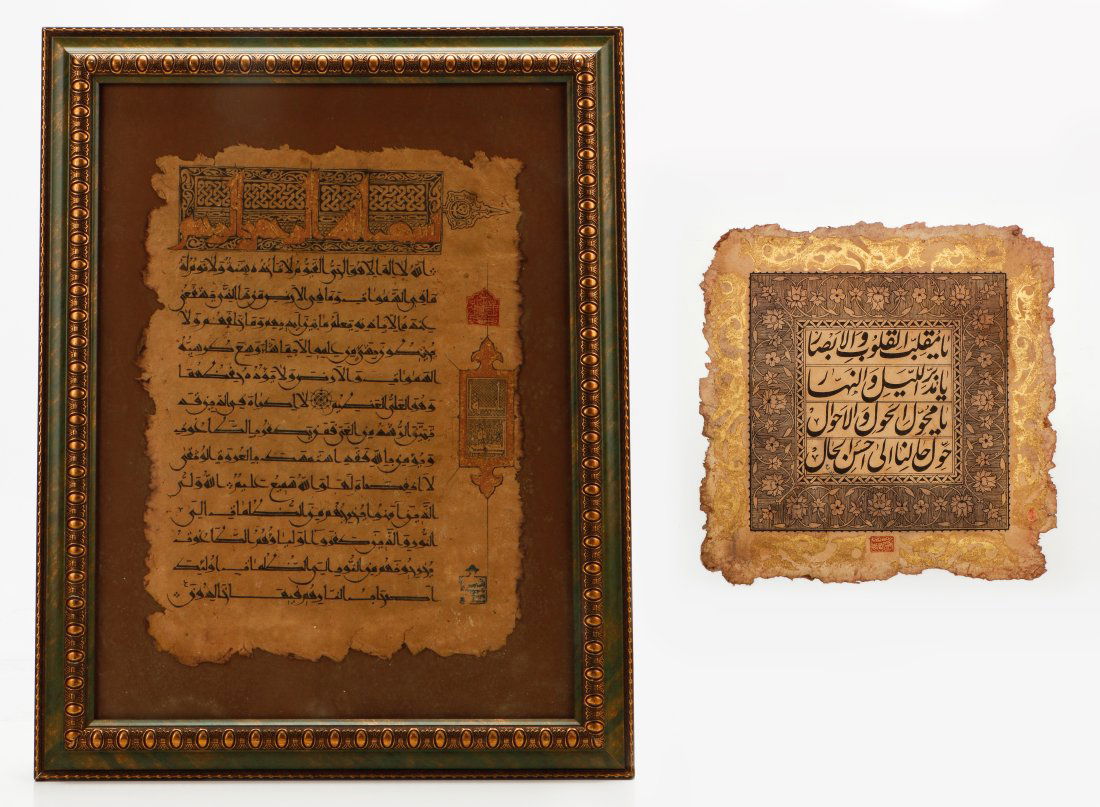 بسم الله الرحمن الرحيم
الله لا اله الا هو الحي القيوم لا تأخذه سنة ولا نوم له
ما في السموات وما في الارض من ذا الذي يشفع
عنده الا باذنه يعلم ما بين ايديهم وما خلفهم ولا
يحيطون بشئ من علمه الا بما شاء وسع كرسيه
السموات والارض ولا يؤده حفظهما
وهو العلي العظيم لا اكراه في الدين قد
تبين الرشد من الغي فمن يكفر بالطاغوت
ويؤمن بالله فقد استمسك بالعروة الوثقى
لا انفصام لها والله سميع عليم الله ولي
الذين آمنوا يخرجهم من الظلمات الى
النور والذين كفروا اولياؤهم الطاغوت
يخرجونهم من النور الى الظلمات اولئك
اصحاب النار هم فيها خالدون
يا مقلب القلوب والابصار
يا مدبر الليل والنهار
يا محول الحول والاحوال
حول حالنا الى احسن الحال